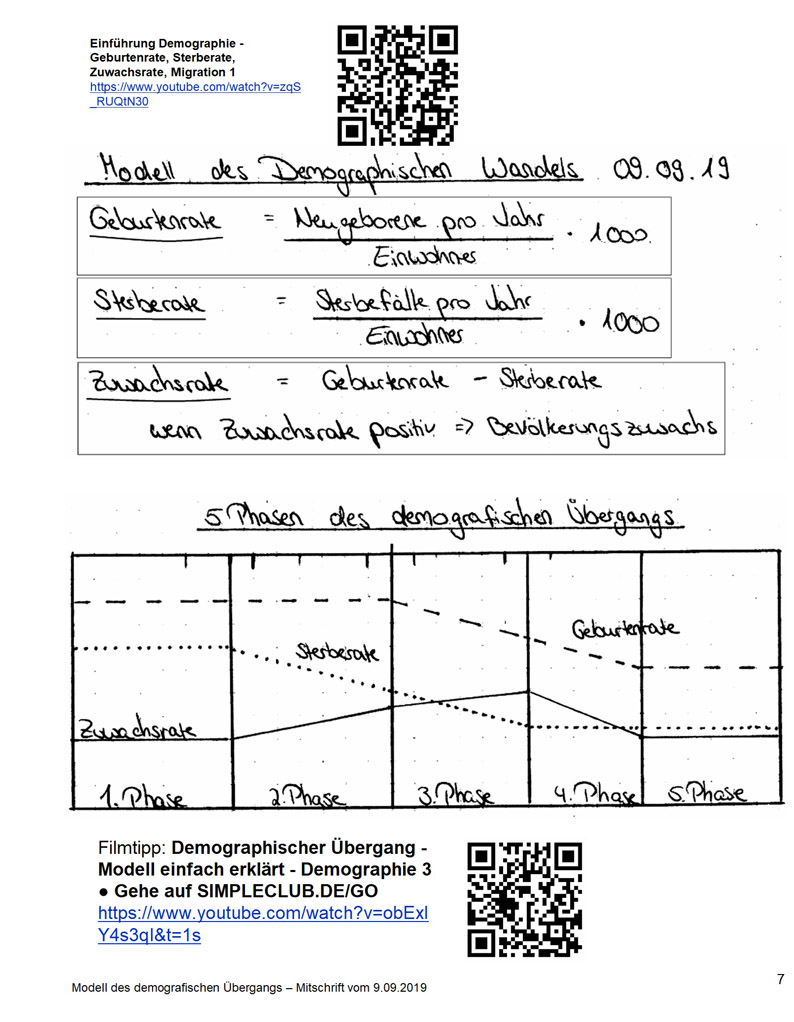 Einführung Demographie -
Geburtenrate, Sterberate,
Zuwachsrate, Migration 1
https://www.youtube.com/watch?v=zqS
_RUQtN30
Modell des Demographischen Wandels 09.09.19
Geburtenrate = Neugeborene pro Jahr / Einwohner · 1000
Sterberate = Sterbefälle pro Jahr / Einwohner · 1000
Zuwachsrate = Geburtenrate - Sterberate
wenn Zuwachsrate positiv => Bevölkerungszuwachs
5 Phasen des demografischen Übergangs
Geburtenrate
Sterberate
Zuwachsrate
1. Phase 2. Phase 3. Phase 4. Phase 5. Phase
Filmtipp: Demographischer Übergang -
Modell einfach erklärt - Demographie 3
● Gehe auf SIMPLECLUB.DE/GO
https://www.youtube.com/watch?v=obExI
Y4s3qI&t=1s
7
Modell des demografischen Übergangs – Mitschrift vom 9.09.2019